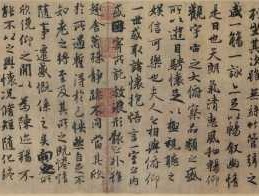 盛一觴一詠亦足以暢敘幽情
是日也天朗氣清惠風和暢仰
觀宇宙之大俯察品類之盛
所以遊目騁懷足以極視聽之
娛信可樂也夫人之相與俯仰
一世或取諸懷抱悟言一室之內
或因寄所託放浪形骸之外雖
趣舍萬殊靜躁不同當其欣
於所遇暫得於己怏然自足不
知老之將至及其所之既惓情
隨事遷感慨係之矣向之所
欣俛仰之間以為陳迹猶不
能不以之興懷況脩短隨化終